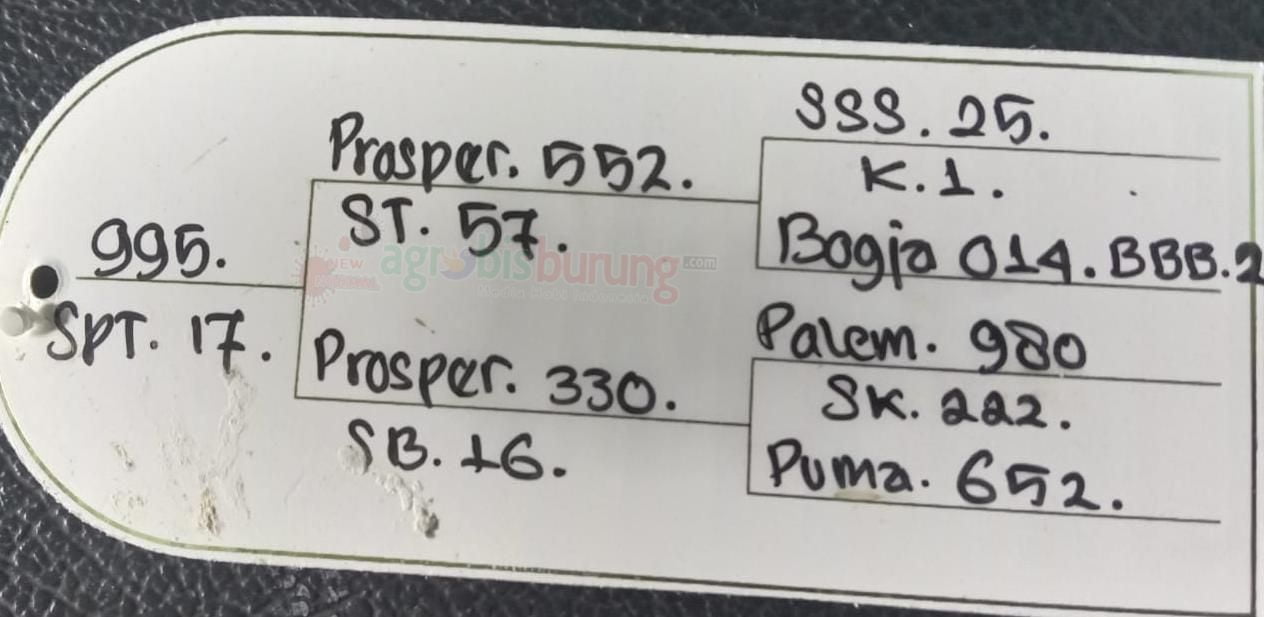 995.
SPT. 17.
Prosper. 552.
ST. 57.
Prosper. 330.
SB. 16.
SSS. 25.
K. 1.
Bogja 014. BBB. 2
Palem. 980
SK. 222.
Puma. 652.
NEW
agrobisburung.com
Media Hobi Indonesia